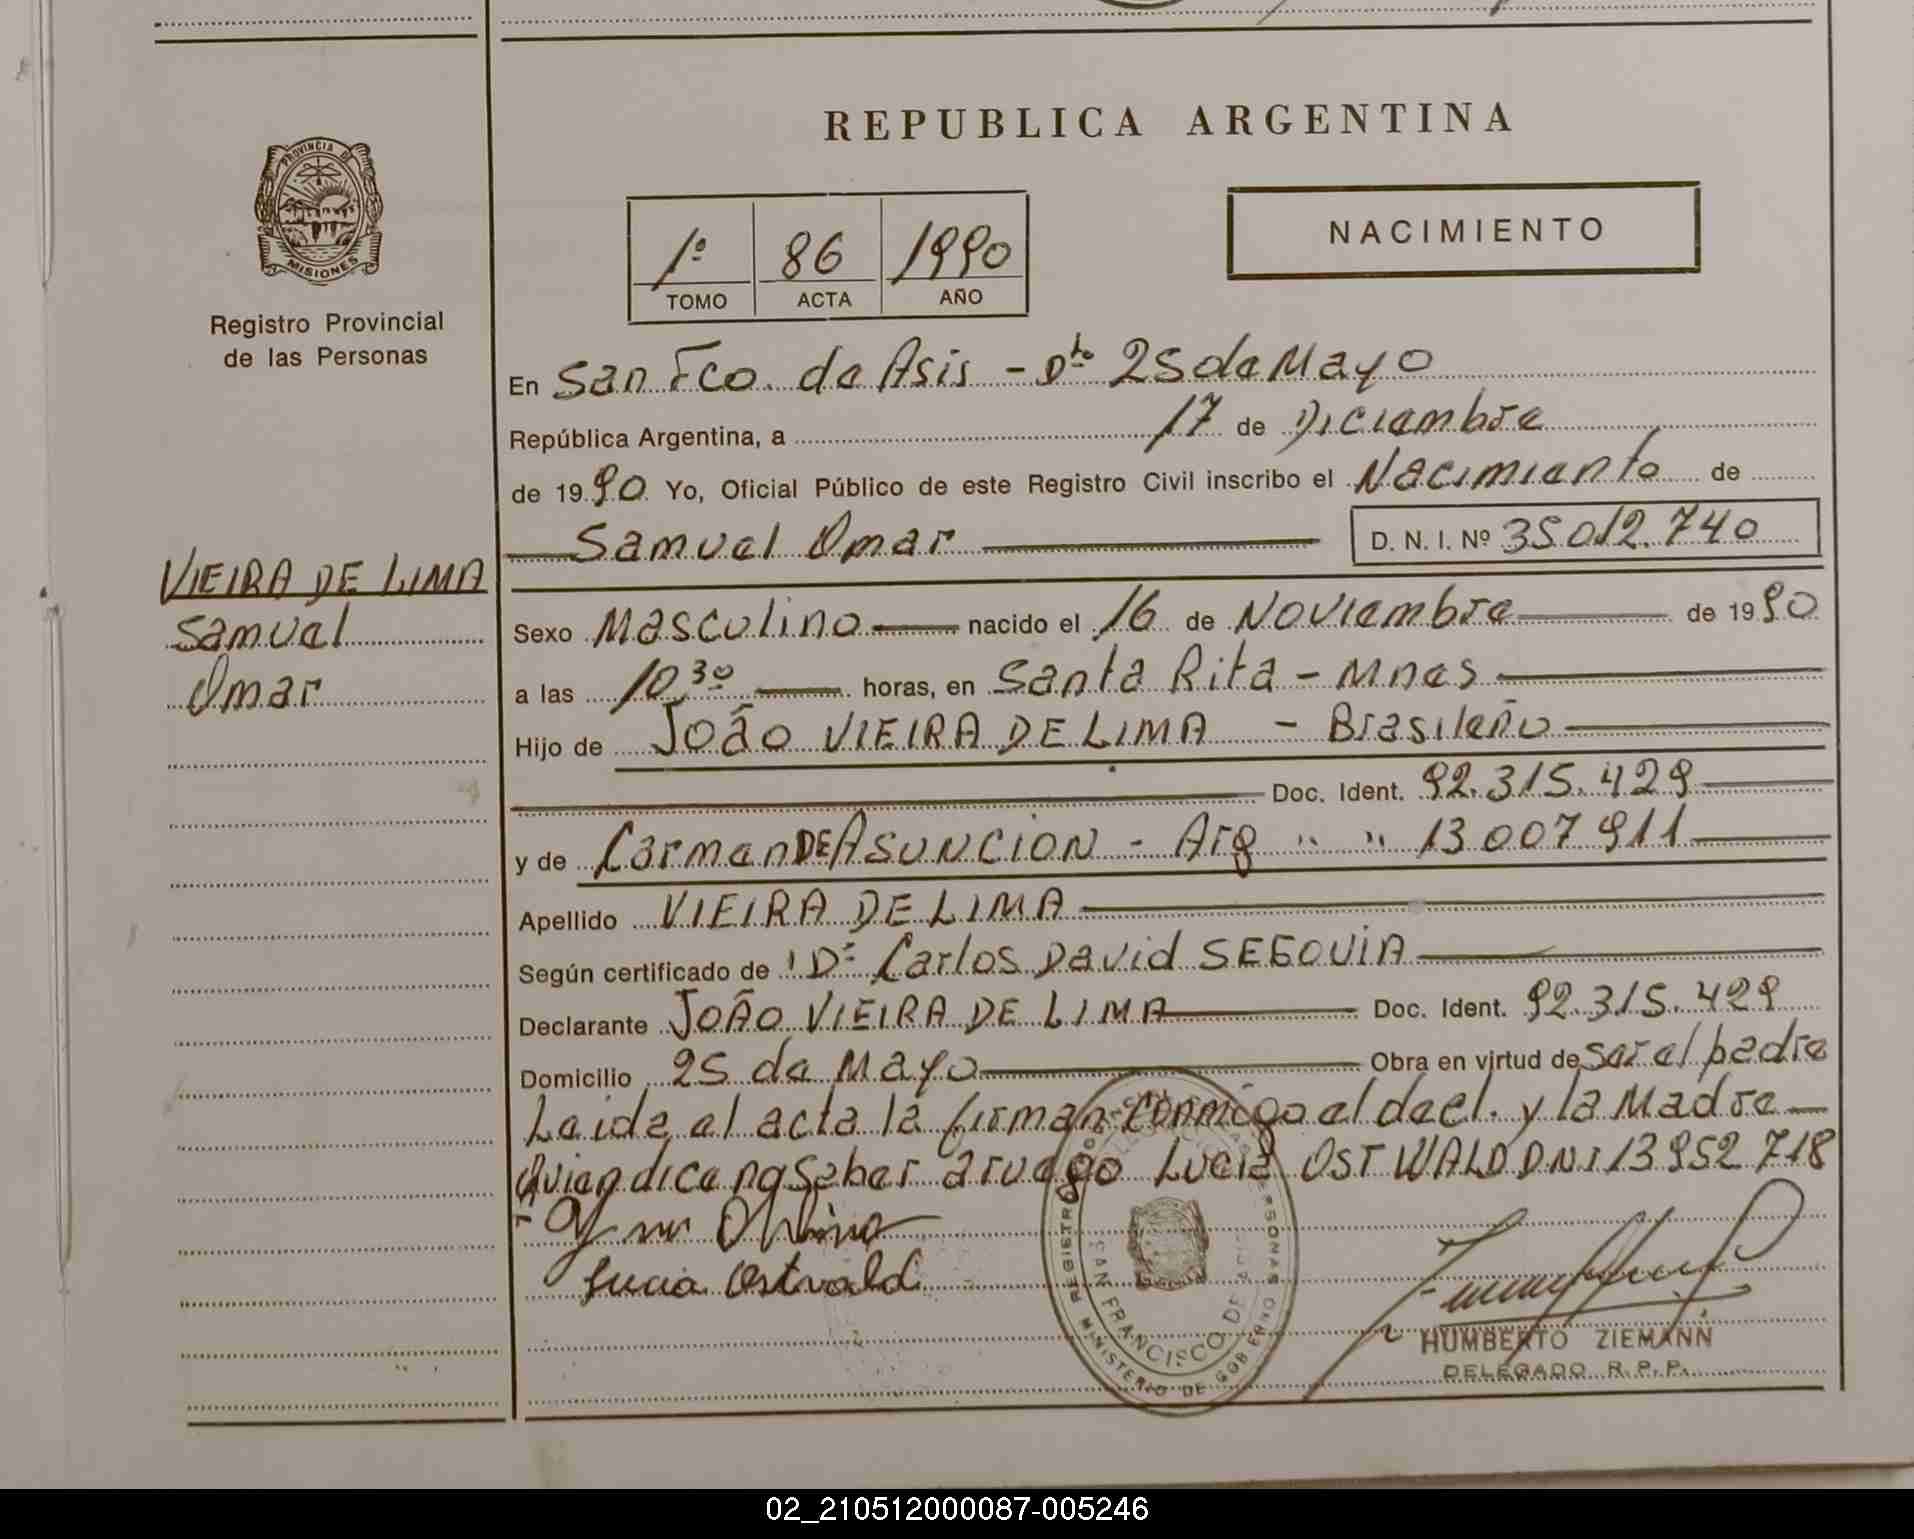 REPUBLICA ARGENTINA
PROVINCIA DE
MISIONES
Registro Provincial
de las Personas
1º 86 1990
TOMO ACTA AÑO
NACIMIENTO
En San Fco. de Asis - Dto 25 de Mayo
República Argentina, a 17 de Diciembre
de 1990 Yo, Oficial Público de este Registro Civil inscribo el Nacimiento de
Samuel Omar D. N. I. Nº 35.012.740
VIEIRA DE LIMA
Samuel
Omar
Sexo Masculino nacido el 16 de Noviembre de 1990
a las 10,30 horas, en Santa Rita - Mnes
Hijo de João VIEIRA DE LIMA - Brasileño
Doc. Ident. 92.315.429
y de Carmen DE ASUNCION - Arg " " 13 007 911
Apellido VIEIRA DE LIMA
Según certificado de Dr Carlos David SEGOVIA
Declarante JOÃO VIEIRA DE LIMA Doc. Ident. 92.315.429
Domicilio 25 de Mayo Obra en virtud de ser el padre
Leida el acta la firman conmigo el decl. y la Madre
Quien dice no Saber a ruego Lucia OSTWALD DNI 13 952 718
Lucia Ostwald
REGISTRO PERSONAS
SAN FRANCISCO DE ASIS
MINISTERIO DE GOBIERNO
HUMBERTO ZIEMANN
DELEGADO R. P. P.
02_210512000087-005246